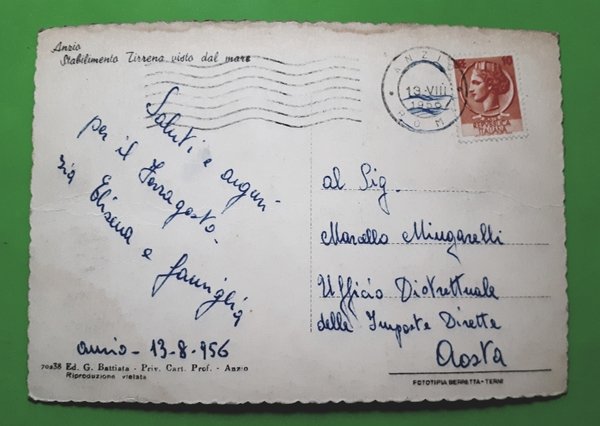 Anzio
Stabilimento Tirrena visto dal mare
ANZIO
13 VIII
1956
ROMA
Saluti e auguri
per il Ferragosto -
zia Elisena e famiglia
anzio - 13-8-956
70238 Ed. G. Battista - Priv. Cart. Prof. - Anzio
Riproduzione vietata
al Sig.
Marcello Mingarelli
Ufficio Distrettuale
delle Imposte Dirette
Aosta
FOTOTIPIA BERRETTA - TERNI